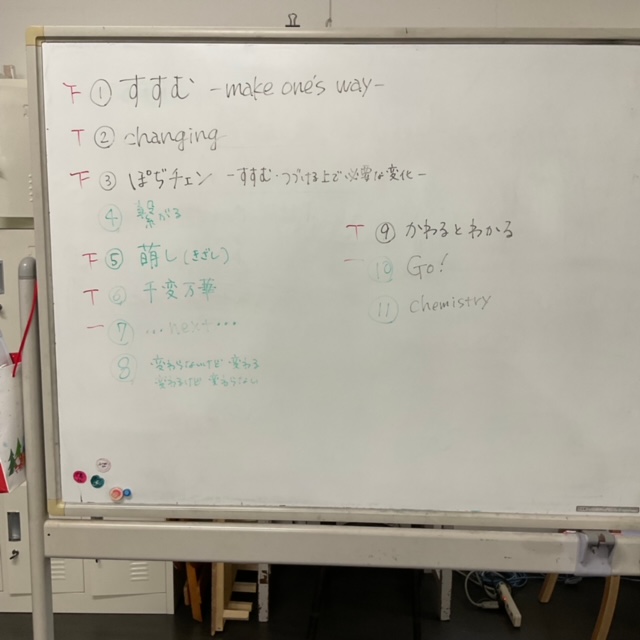 下 ① すすむ -make one's way-
T ② changing
下 ③ ぽぢチェン -すすむ・つづける上で必要な変化-
④ 繋がる
下 ⑤ 萌し(きざし)
T ⑥ 千変万華
一 ⑦ ...next...
⑧ 変わらないけど変わる
変わるけど変わらない
T ⑨ かわるとわかる
一 ⑩ Go!
⑪ chemistry